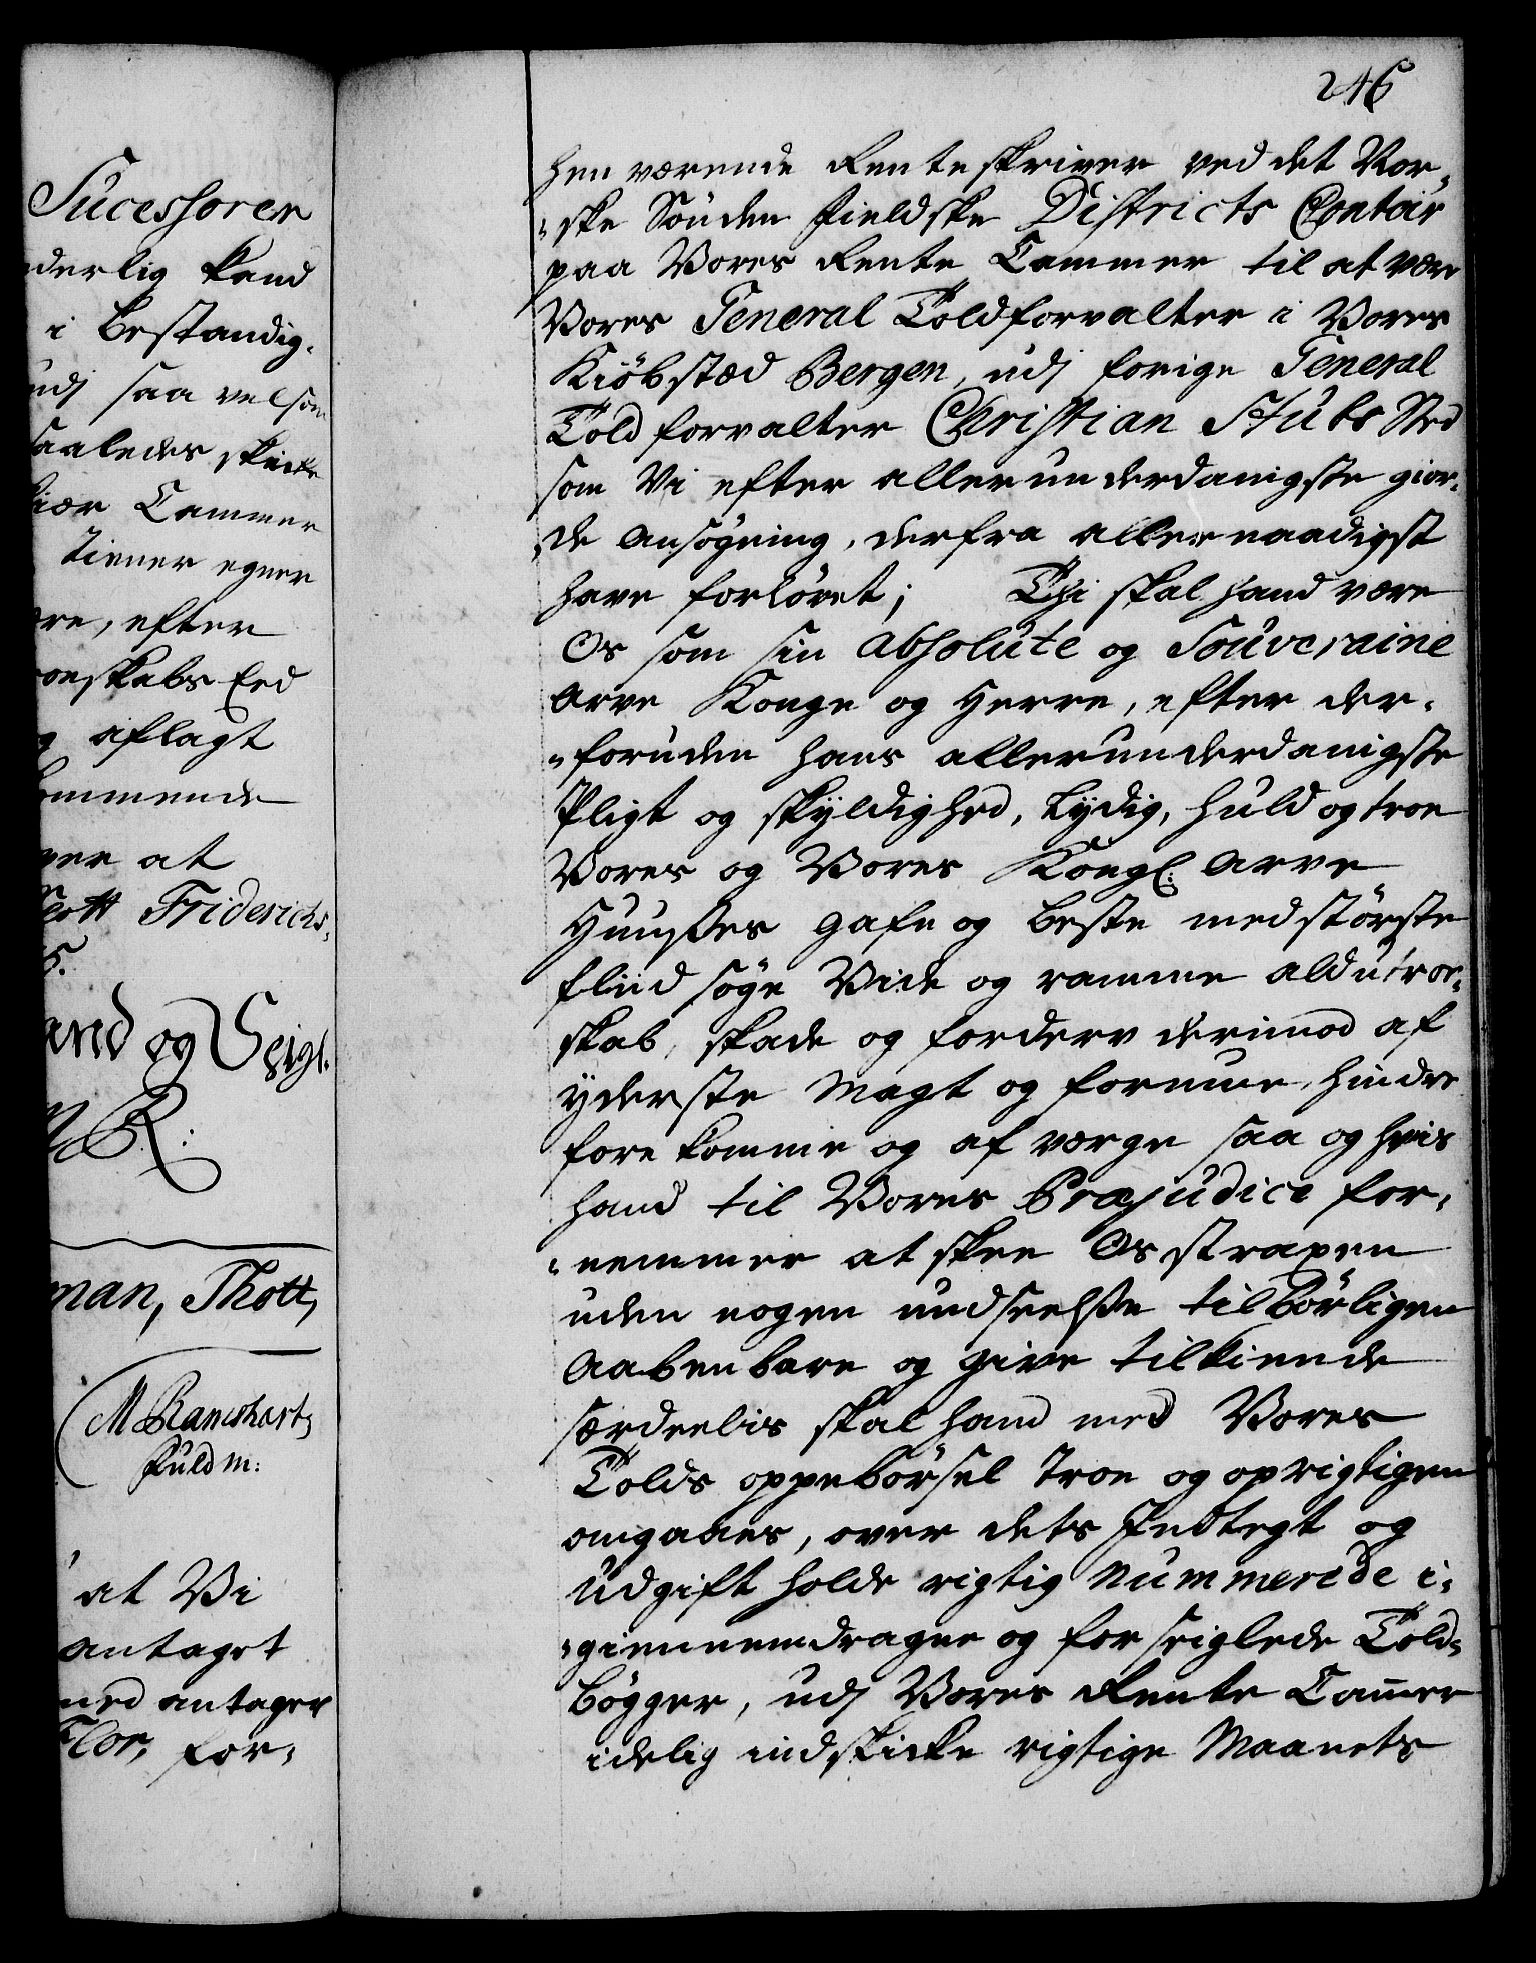 Sucessorer
derlig kand
i bestandig-
udj saa vel som
saaledes skicke
Cammer
tiener egner
re, efter
oeskabs Eed
g aflagt
kommende
ver at
Slott Friderichs-
and og Seigl.
R:
man, Thott,
M Ramshart,
fuldm:
at Vi
antaget
ned antager
Flor, for-
246
hen værende Renteskriver ved det Nor-
-ske Sønden Fieldske Districts Contoir
paa Vores Rente Cammer til at være
Vores General Toldforvalter i Vores
Kiøbstæd Bergen, udj forige General
Toldforvalter Christian Stubs Sted
som Vi efter allerunderdanigste gior-
-de Ansøgning, derfra allernaadigst
have forløvet; Thi skal hand være
Os som sin absolute og Souveraine
Arve Konge og Herre, efter der-
-foruden hans allerunderdanigste
Pligt og skyldighed, lydig, huld og troe
Vores og Vores Kongl: Arve
Huuses gafn og beste med største
fliid søge Vide og ramme ald utroe-
skab, skade og forderv derimod af
yderste Magt og formue, hindre
fore komme og af værge saa og hvis
hand til Vores Præjudice for-
-nemmer at skee Os straxen
uden nogen undseelse tilbørligen
Aabenbare og give tilkiende
særdeelis skal hand med Vores
Tolds oppebørsel troe og oprigtigen
omgaaes, over dets Indtegt og
Udgift holde rigtig Nummerede i-
-giennemdragne og forseiglede Told-
bøgger, udj Vores Rente Cammer
idelig indskicke rigtige Maanets